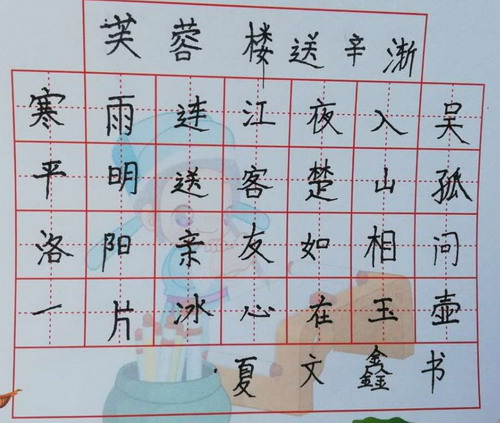 芙蓉楼送辛渐
寒雨连江夜入吴
平明送客楚山孤
洛阳亲友如相问
一片冰心在玉壶
夏文鑫书